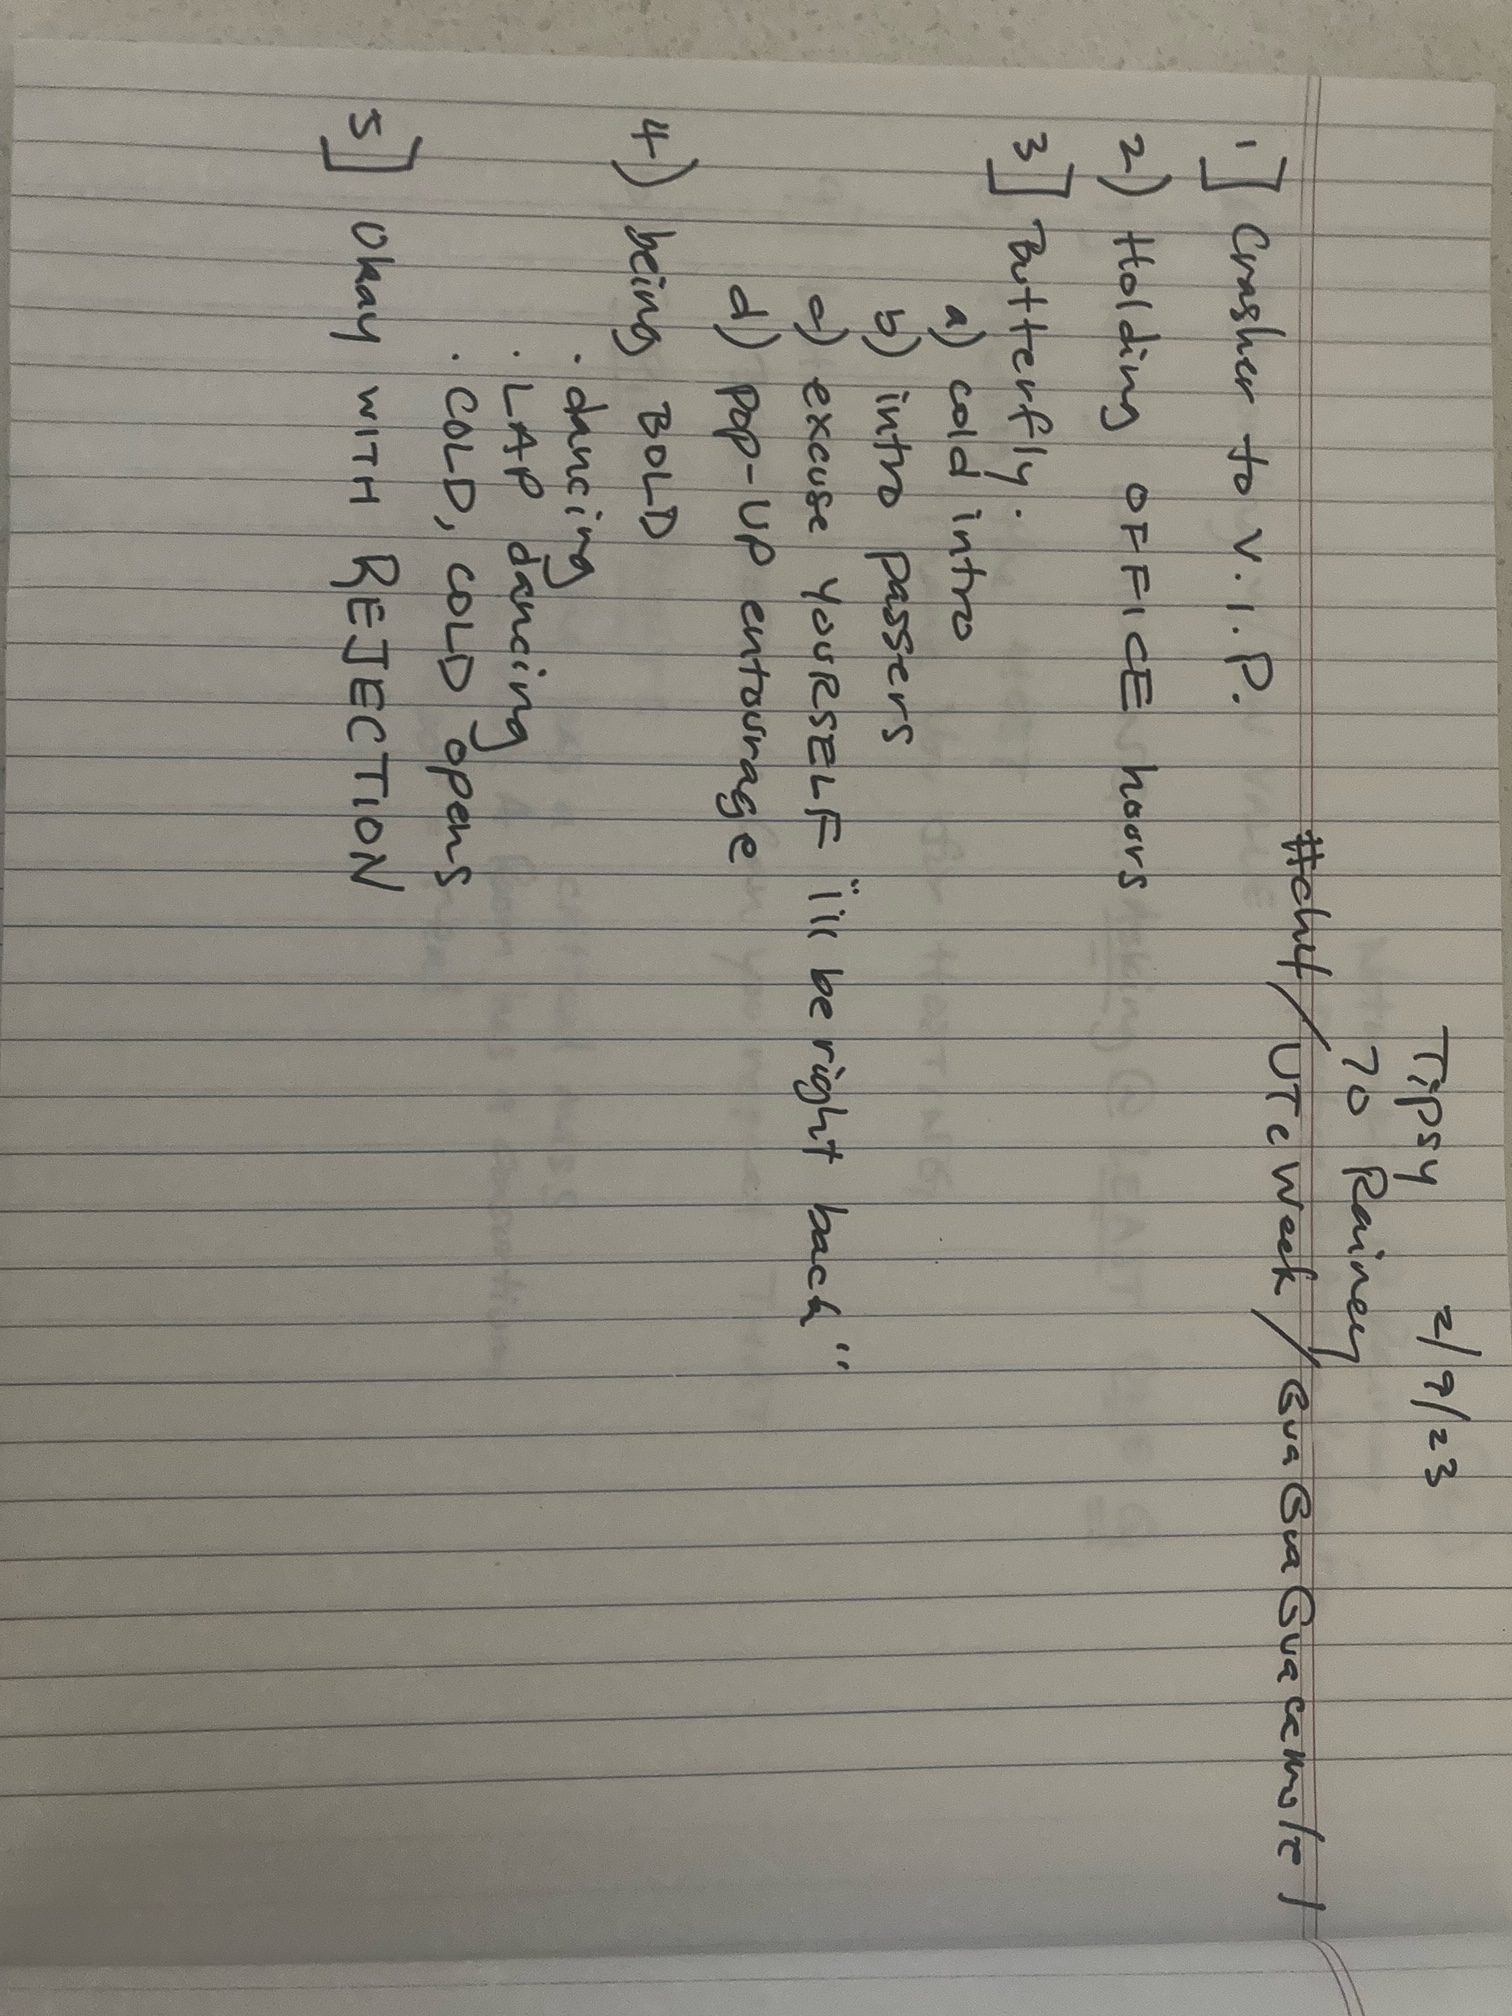 Tipsy 2/9/23
70 Rainey
/ UTC Week / Gua Gua Guacamole /
1] Crasher to V.I.P.
2) Holding OFFICE hours
3] Butterfly.
a) cold intro
b) intro passers
c) excuse YOURSELF "i'll be right back"
d) POP-UP entourage
4) being BOLD
. dancing
. LAP dancing
. COLD, COLD opens
5] Okay WITH REJECTION